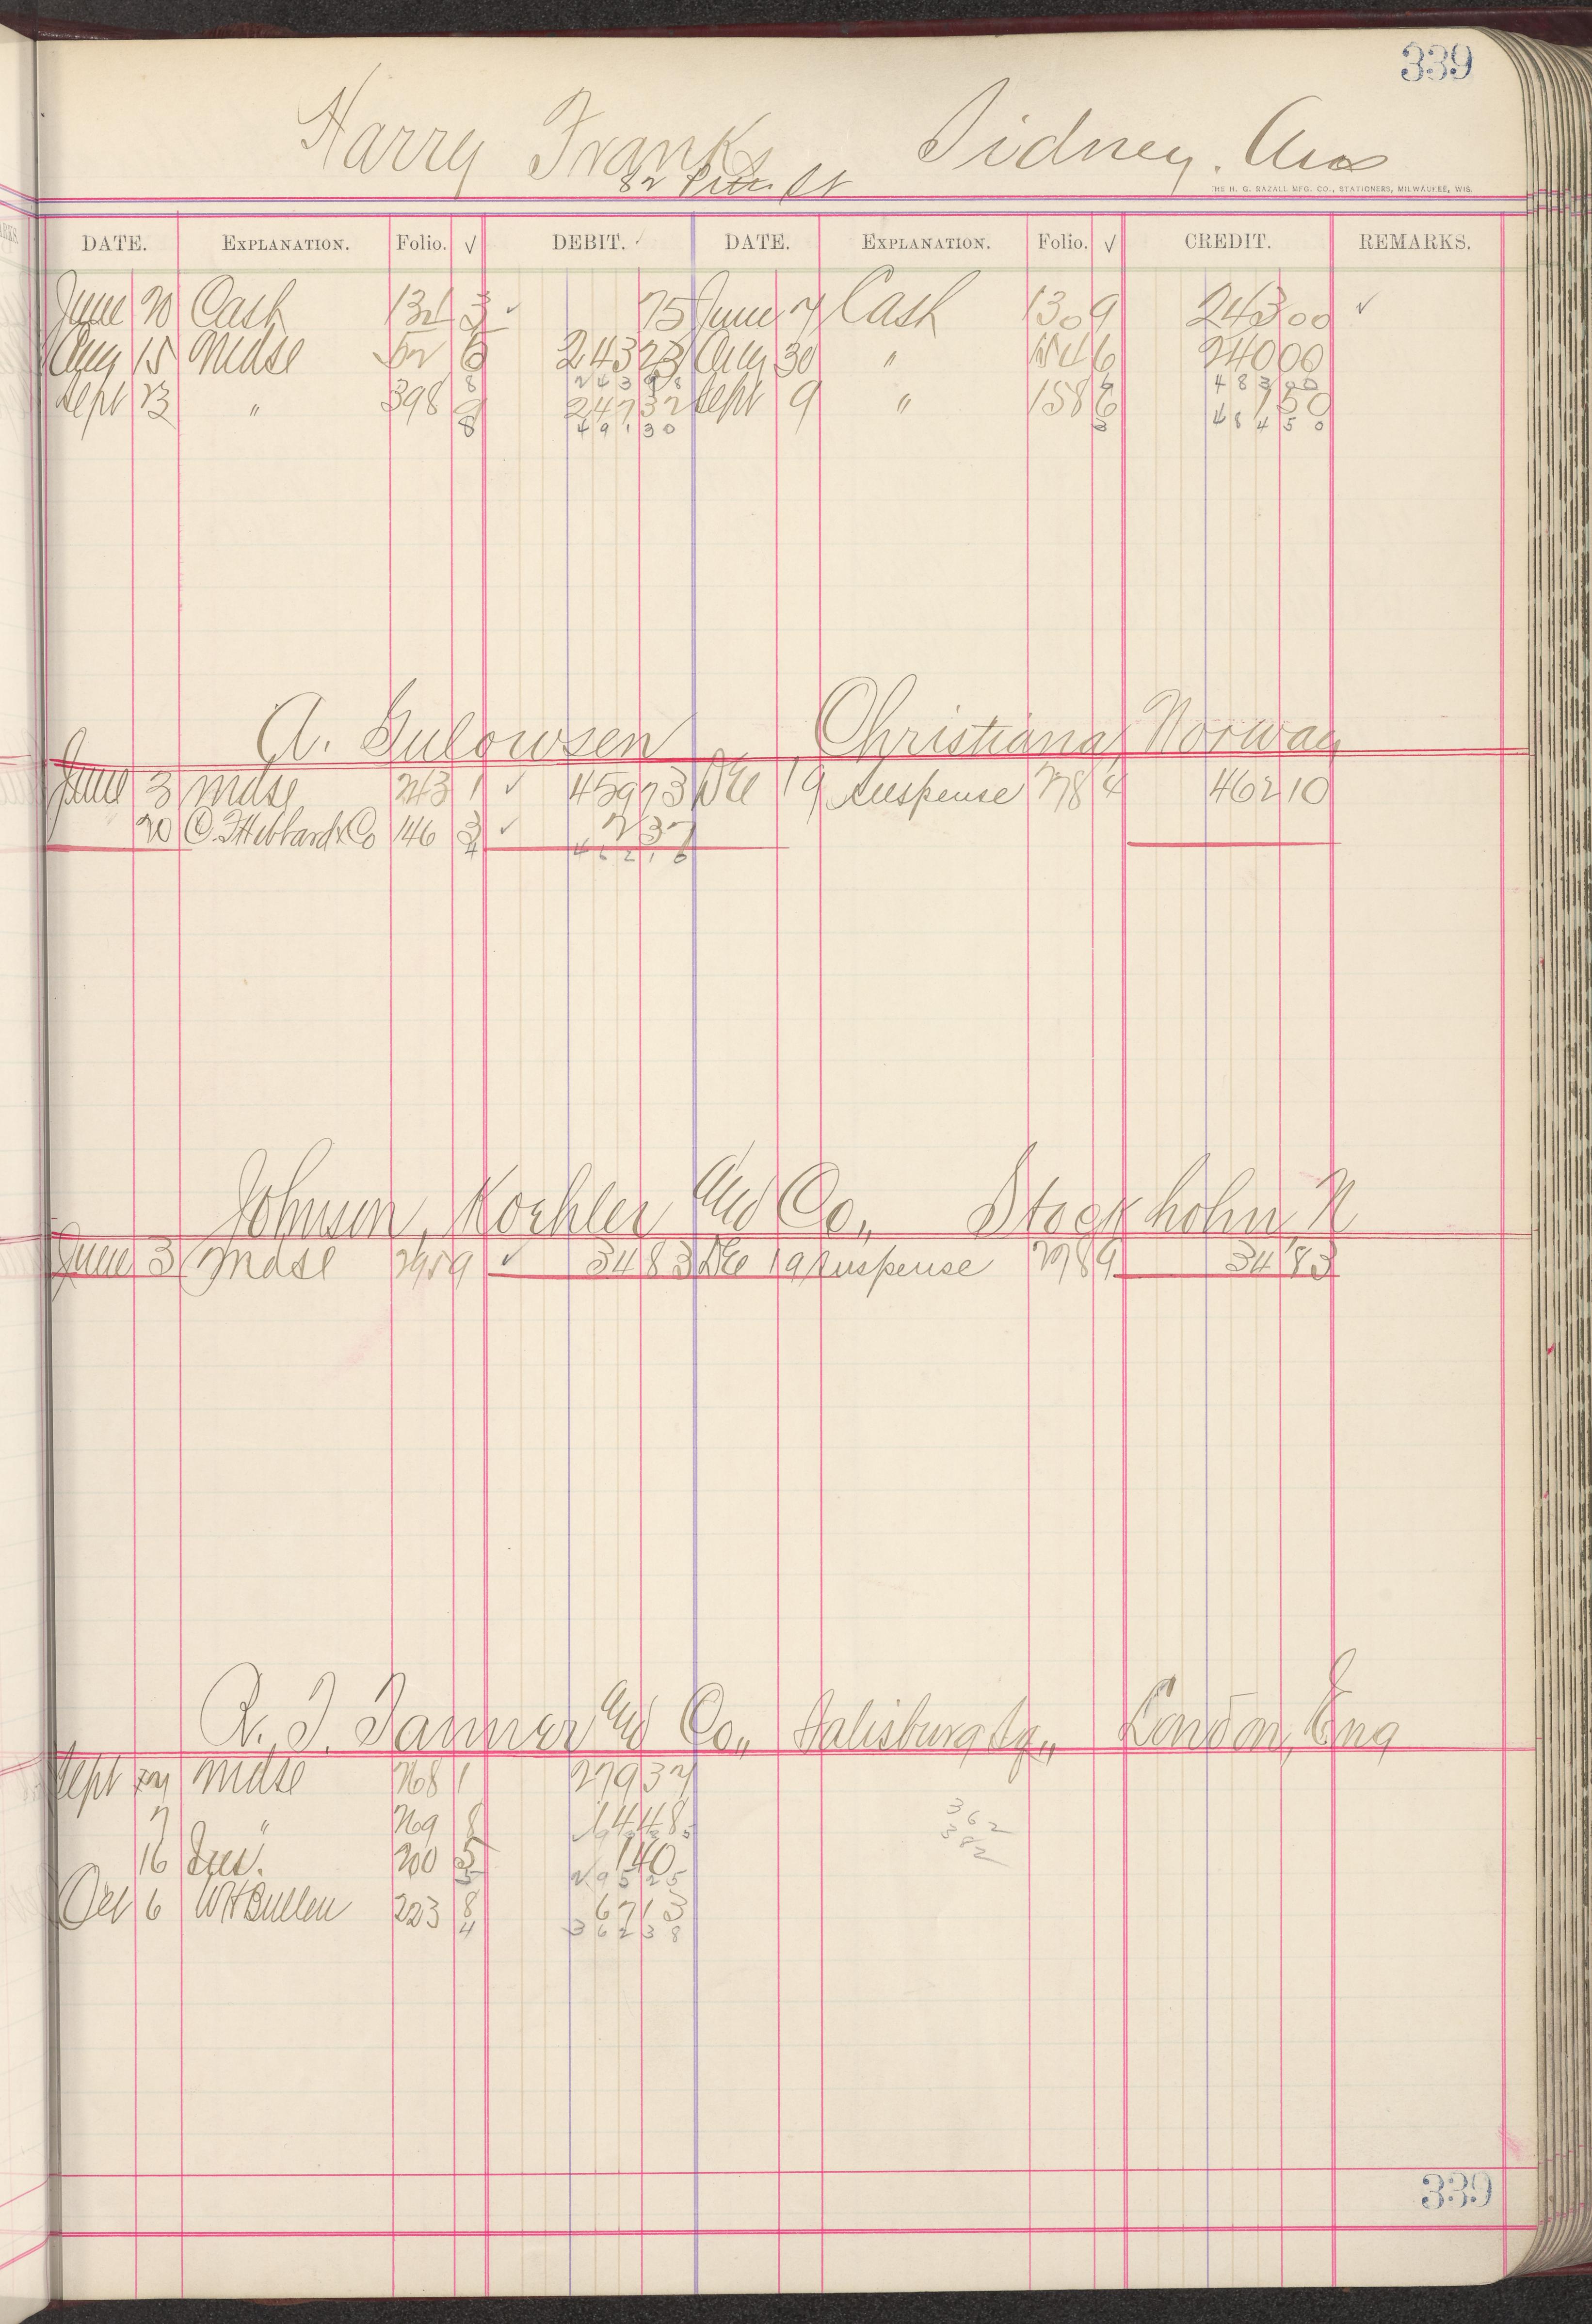 339
Harry Franks Sidney. Aus
82 Pitt St
THE H. G. RAZALL MFG. CO., STATIONERS, MILWAUKEE, WIS.
DATE. EXPLANATION. Folio. √ DEBIT. DATE. EXPLANATION. Folio. √ CREDIT. REMARKS.
June 20 Cash 132 3 ✓ 75 June 7 Cash 130 9 243 00 ✓
Aug 15 Mdse 52 6 243 23 Aug 30 " 154 6 240 00
243 98 483 00
Sept 23 " 398 9 247 32 Sept 9 " 158 6 1 50
491 30 484 50
A. Gulowsen Christiana, Norway
June 3 Mdse 243 1 ✓ 459 73 Dec 19 Suspense 278 4 462 10
20 O. Hebbard & Co 146 3 ✓ 2 37
462 10
Johnsen, Koehler and Co., Stockholm, N
June 3 Mdse 245 9 ✓ 34 83 Dec 19 Suspense 278 9 34 83
A. J. Tanner and Co., Salisbury Sq., London, Eng
Sept 24 Mdse 268 1 279 37
7 " 269 8 14 48
16 Exp. 200 3 1 40
295 25
Oct 6 W H Bullen 223 8 67 13
362 38
362
382
339